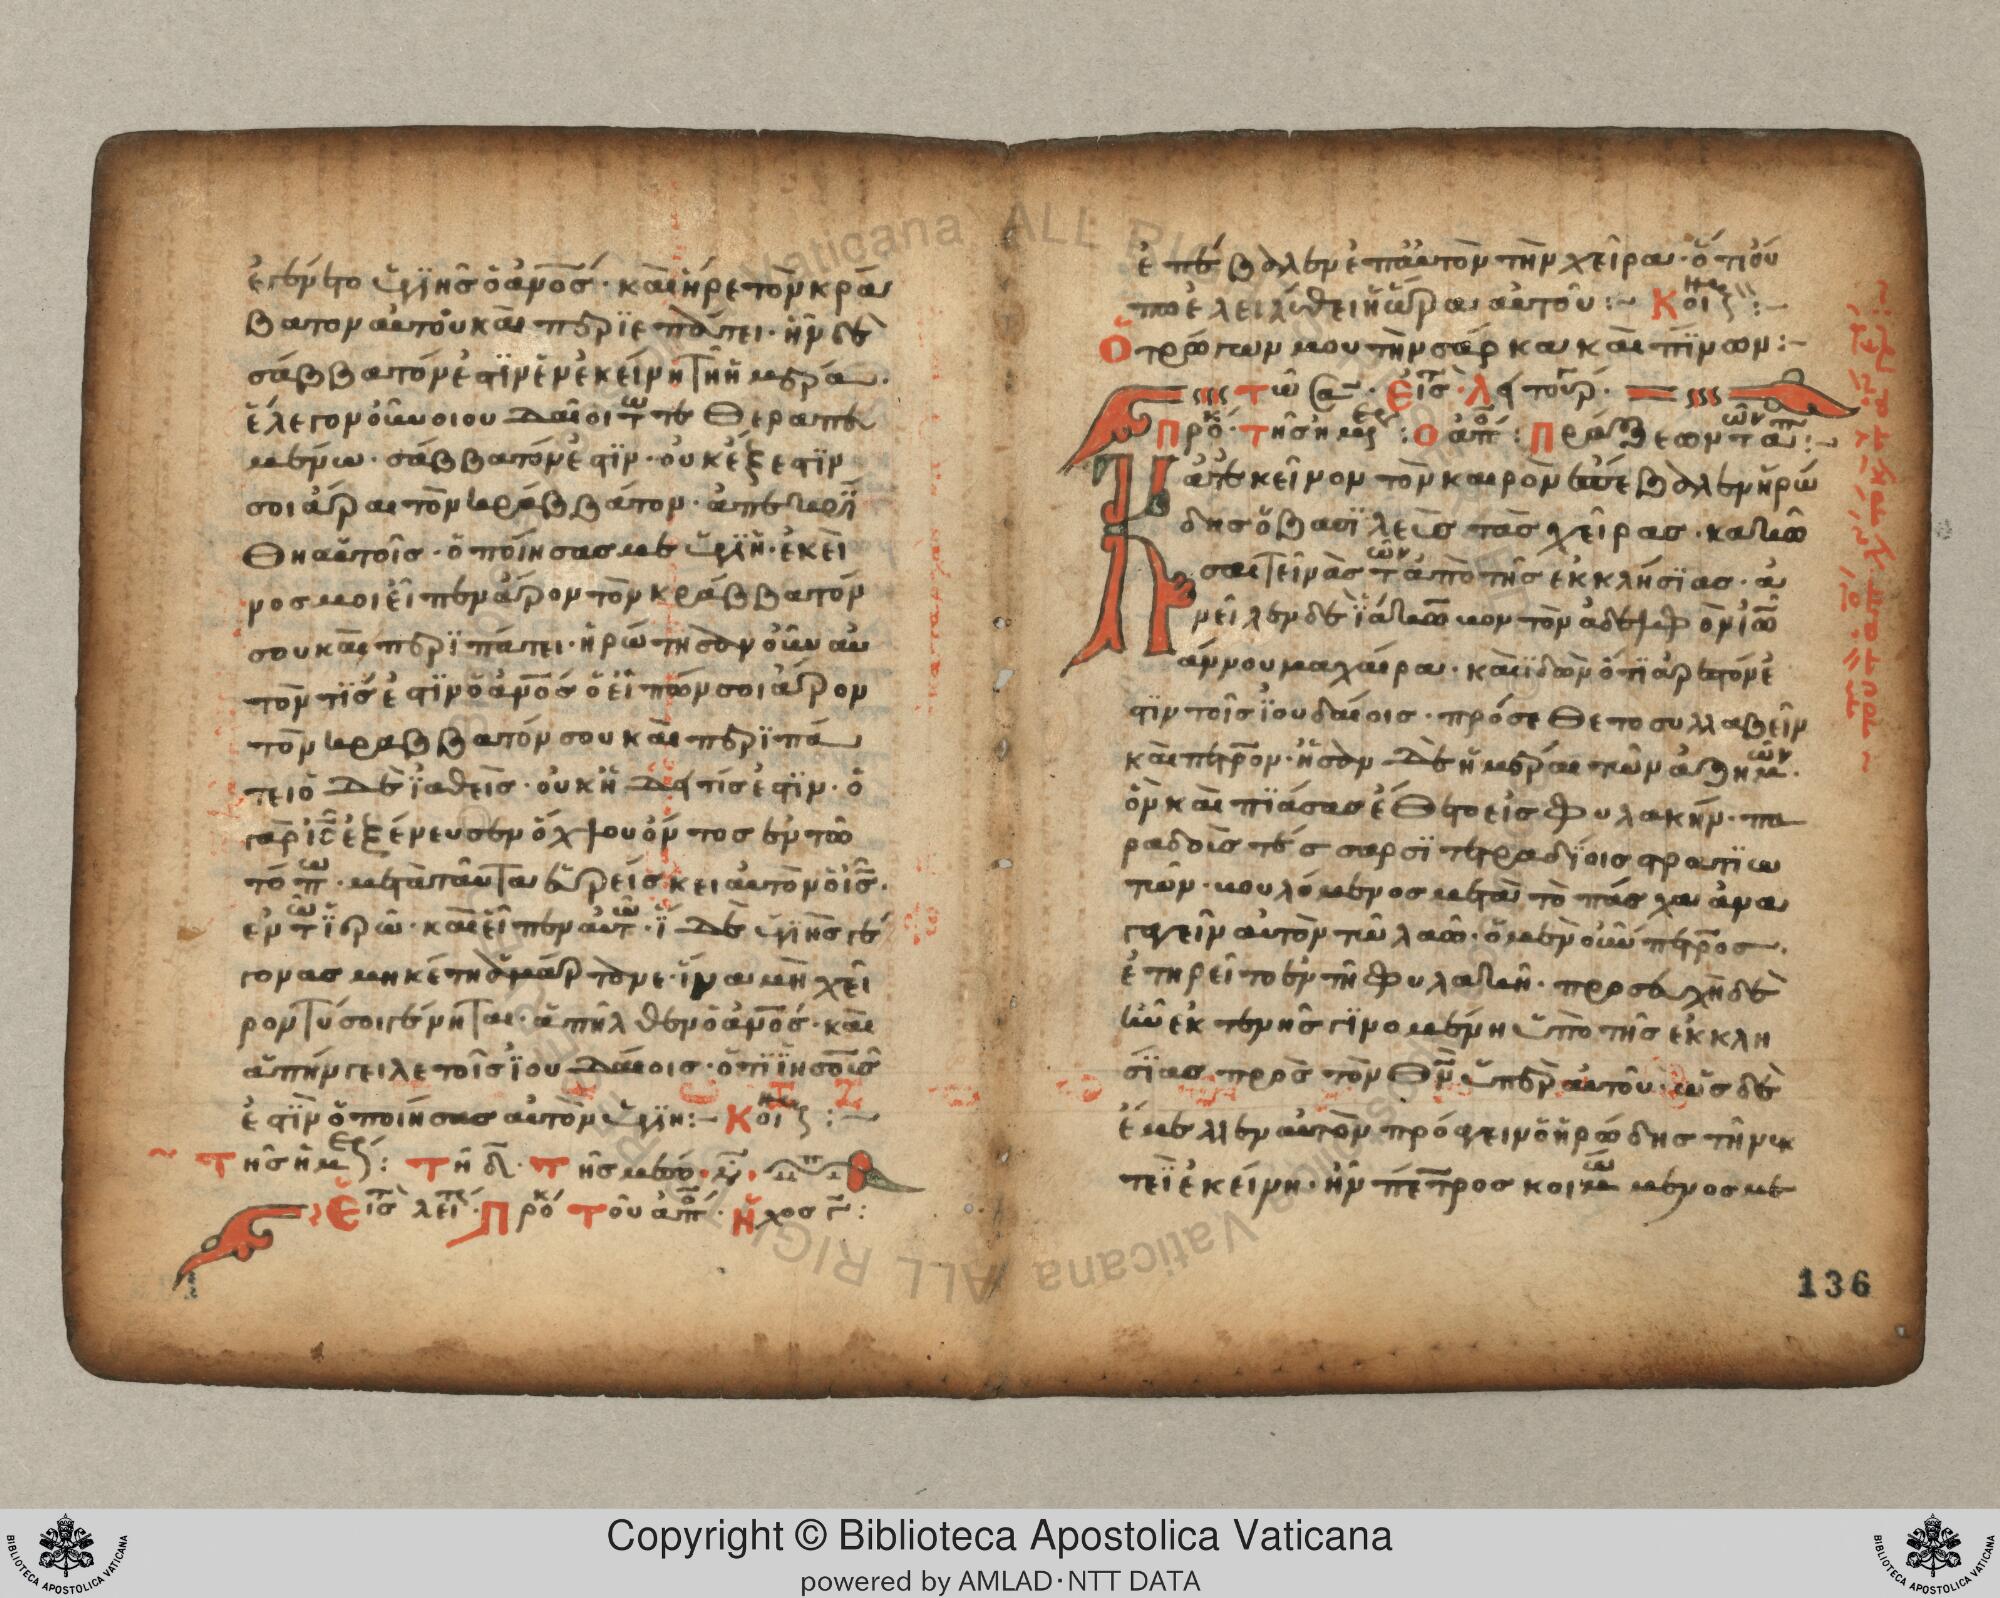 ἐγένετο ὑγιὴς ὁ ἀνος· καὶ ἦρε τὸν κρά
βατον αυτοῦ και περιεπάτει· ἦν δὲ
σάββατον ἐν ἐκείνη τῆ ἡμέρα·
ἔλεγον οὖν οι ιουδαῖοι τῶ τεθεραπευ
μένω· σάββατόν ἐστιν· οὐκ ἔξεστιν
σοι ἆραι τὸν κράββατον· ἀπεκρί
θη αὐτοῖς· ὁ ποιήσας με ὑγιῆ· ἐκεῖ
νος μοι εἶπεν ἆρον τὸν κράββατόν
σου και περιπάτει· ἠρώτησαν οὖν αυ
τὸν τίς ἐστιν ὁ ἀνος ὁ εἰπών σοι ἆρον
τὸν κράββατόν σου και περιπά
τει ὁ δὲ ἰαθεὶς· οὐκ ἤδει τίς ἐστιν· ὁ
γὰρ ις ἐξένευσεν ὄχλου ὄντος ἐν τῶ
τόπω· μετὰ ταῦτα εὑρίσκει αὐτὸν ὁ ις·
ἐν τῶ ἱερῶ· και εἶπεν αὐτῶ· ἴδε ὑγιὴς γέ
γονας μηκέτι ἁμάρτανε· ἵνα μὴ χεῖ
ρον τι σοι γένηται· ἀπῆλθεν ὁ ἀνος· και
ἀπήγγειλε τοῖς ιουδαίοις· ὅτι ιησοῦς
ἐστὶν ὁ ποιήσας αὐτὸν ὑγιῆ:~ Κοι :~
Τῆς ἡμερ: Τῆ δ· Τῆς μεσο· ν·
Εἰς λειτ· Προκ Τοῦ ἀπο· Ἦχος γ:
ἐπέβαλεν ἐπ' αὐτὸν τὴν χεῖρα· ὅτι οὔ
πω ἐλειλύθει ἡ ὥρα αὐτοῦ:~ Κοι :~
Ὁ τρώγων μου τὴν σάρκα και πίνων:~
Τῶ Σα· Εἰς· Λειτουρ·
Προκ· Τῆς ἡμερ: Ο ἀπο: Πράξεων τῶν απ:~
Κατ' ἐκεῖνον τὸν καιρὸν ἐπέβαλεν ἡρώ
δης ὁ βασιλεὺς τὰς χεῖρας· κακῶ
σαι τινὰς τῶν ἀπὸ τῆς ἐκκλησίας· ἀ
νεῖλεν δὲ ἰάκωβον τὸν ἀδελφὸν ἰω
άννου μαχαίρα· και ἰδὼν ὅτι ἀρεστόν ἐ
στιν τοῖς ἰουδαίοις· πρόσεθετο συλλαβεῖν
και πετρον· ἦσαν δὲ ἡμέραι τῶν ἀζήμων·
ὃν και πιάσας ἔθετο εἰς φυλακήν· πα
ραδοὺς τέσσαρσι τετραδίοις στρατιω
τῶν· βουλόμενος μετὰ τὸ πάσχα ἀνα
γαγεῖν αὐτὸν τῶ λαῶ· ὁ μὲν οὖν πετρος·
ἐτηρεῖτο ἐν τῆ φυλακῆ· προσευχὴ δὲ
ἦν ἐκτενὴς γινομένη ὑπὸ τῆς ἐκκλη
σίας πρὸς τὸν θν ὑπὲρ αὐτοῦ· ὡς δὲ
ἔμελλεν αὐτὸν πρόαγειν ὁ ἡρώδης τῆ νυκ
τὶ ἐκείνη· ἦν πέτρος κοιμώμενος με
136
Copyright © Biblioteca Apostolica Vaticana
powered by AMLAD·NTT DATA